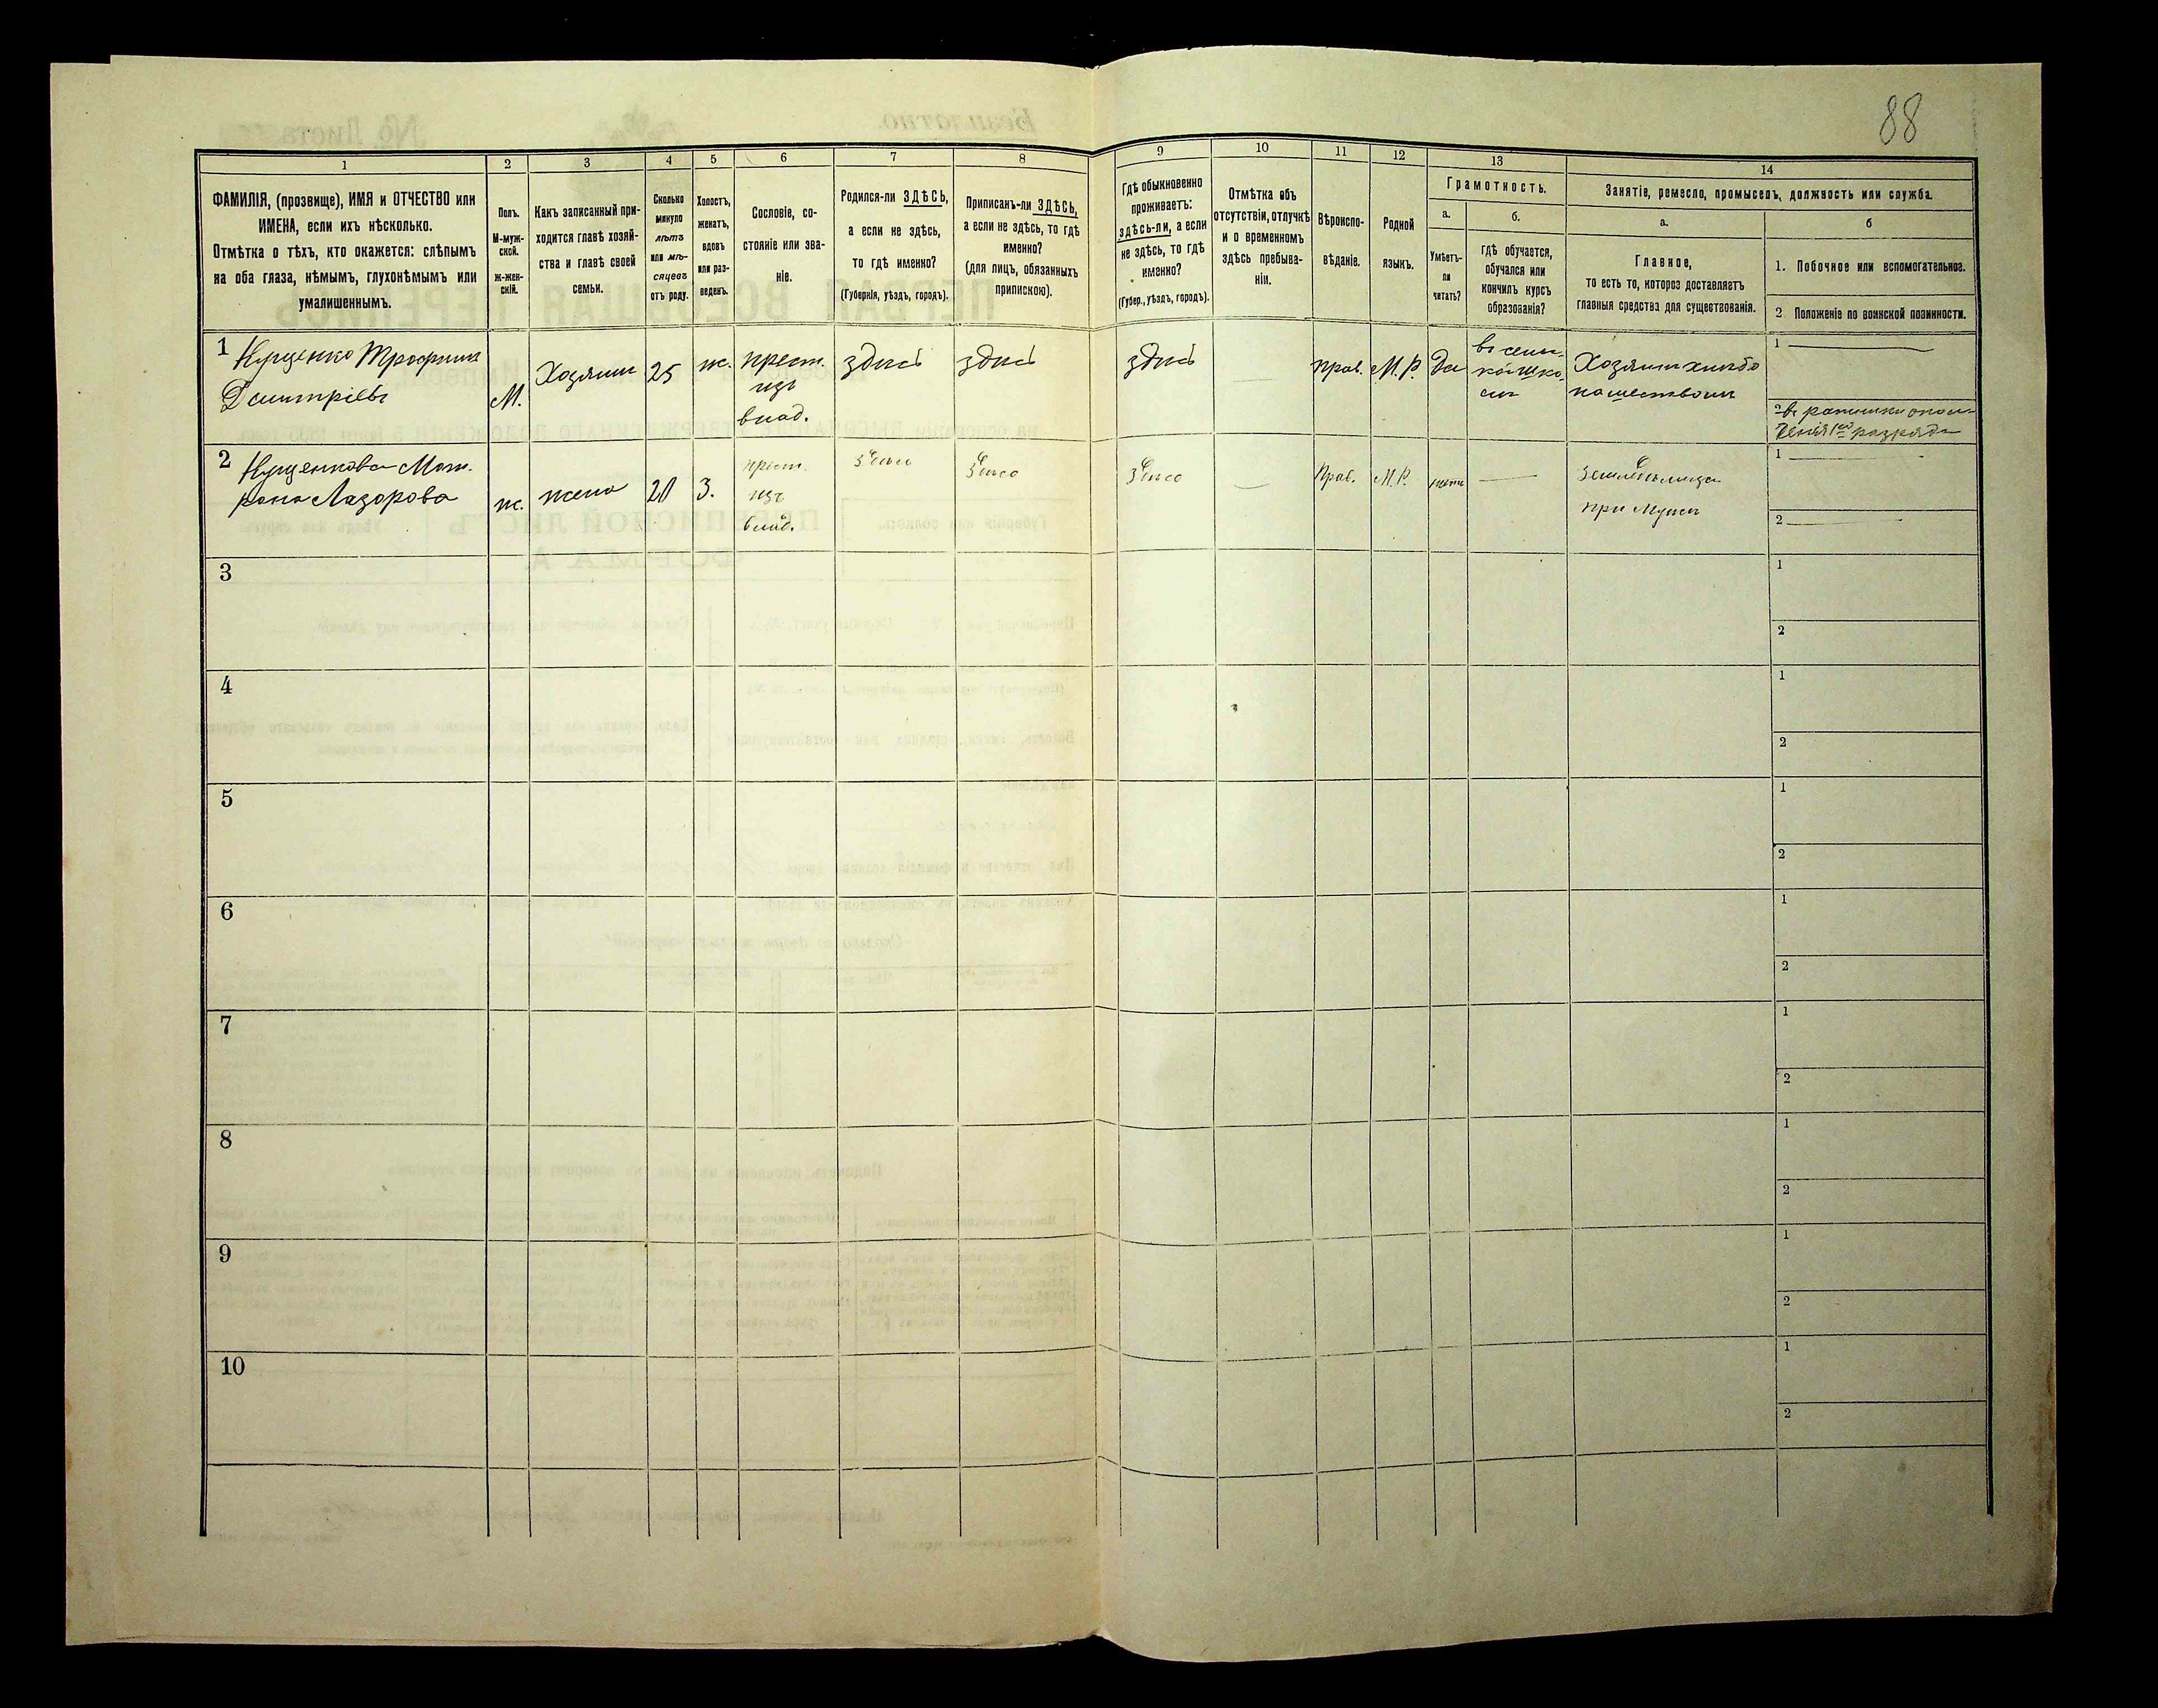 88
1
2
3
4
5
6
7
8
9
10
11
12
13
14
ФАМИЛІЯ, (прозвище), ИМЯ и ОТЧЕСТВО или
ИМЕНА, если ихъ нѣсколько.
Отмѣтка о тѣхъ, кто окажется: слѣпымъ
на оба глаза, нѣмымъ, глухонѣмымъ или
умалишеннымъ.
Полъ.
М-муж-
ской.
Ж-жен-
скій.
Какъ записанный при-
ходится главѣ хозяй-
ства и главѣ своей
семьи.
Сколько
минуло
лѣтъ
или мѣ-
сяцевъ
отъ роду.
Холостъ,
женатъ,
вдовъ
или раз-
веденъ.
Сословіе, со-
стояніе или зва-
ніе.
Родился-ли ЗДѢСЬ,
а если не здѣсь,
то гдѣ именно?
(Губернія, уѣздъ, городъ).
Приписанъ-ли ЗДѢСЬ,
а если не здѣсь, то гдѣ
именно?
(для лицъ, обязанныхъ
припискою).
Гдѣ обыкновенно
проживаетъ:
здѣсь-ли, а если
не здѣсь, то гдѣ
именно?
(Губер., уѣздъ, городъ).
Отмѣтка объ
отсутствіи, отлучкѣ
и о временномъ
здѣсь пребыва-
ніи.
Вѣроиспо-
вѣданіе.
Родной
языкъ.
Грамотность.
а.
Умѣетъ-
ли
читать?
б.
гдѣ обучается,
обучался или
кончилъ курсъ
образованія?
Занятіе, ремесло, промыселъ, должность или служба.
а.
Главное,
то есть то, которое доставляетъ
главныя средства для существованія.
б
1. Побочное или вспомогательное.
2 Положеніе по воинской повинности.
1
Трофимъ
Дмитріевъ
М.
Хозяинъ
25
ж.
крест.
изъ
влад.
здѣсь
здѣсь
здѣсь
Прав.
М. Р.
Да
въ сель-
кой шко-
лѣ
Хозяинъ хлѣбо
пашествомъ
1
2 въ ратники опол-
ченія 1го разряда
2
Мат-
рона Лазорова
ж.
жена
20
З.
крест.
изъ
влад.
Здѣсь
Здѣсь
Здѣсь
Прав.
М. Р.
нетъ
Земледѣлица
при мужѣ
1
2
3
1
2
4
1
2
5
1
2
6
1
2
7
1
2
8
1
2
9
1
2
10
1
2